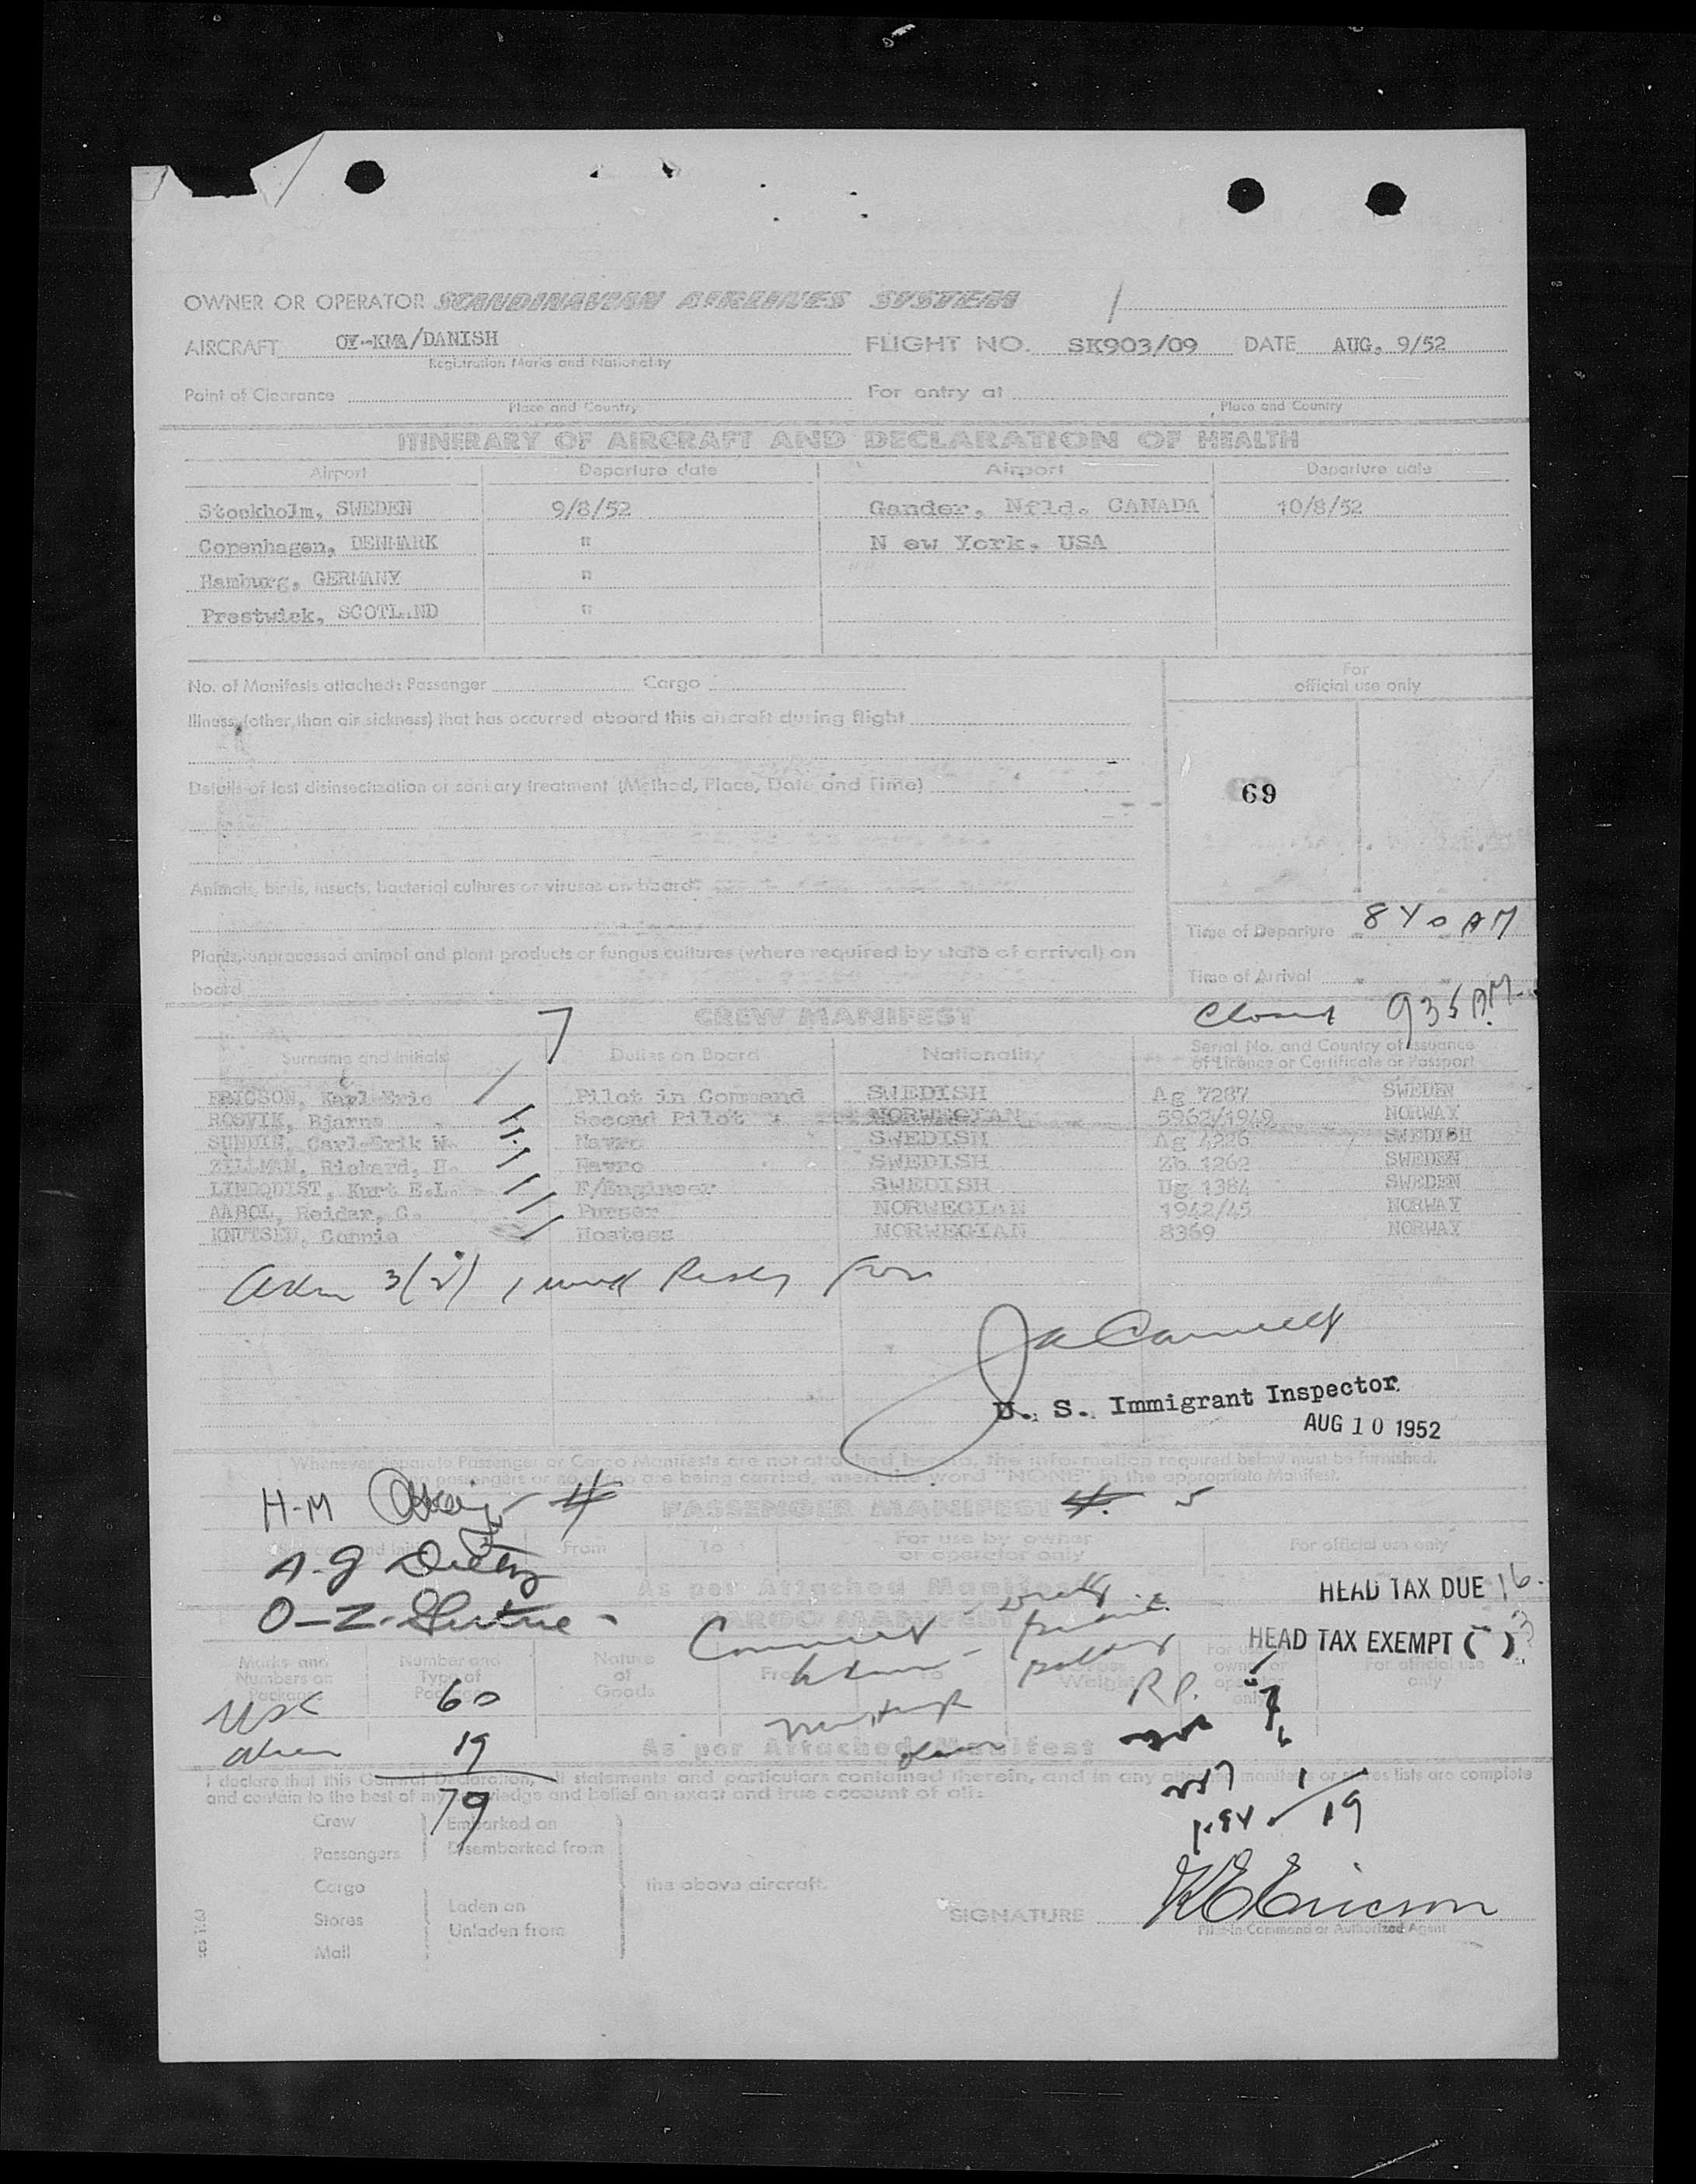 OWNER OR OPERATOR SCANDINAVIAN AIRLINES SYSTEM
AIRCRAFT OY-KMA/DANISH FLIGHT NO. SK903/09 DATE AUG. 9/52
Registration Marks and Nationality
Point of Clearance For entry at
Place and Country Place and Country
ITINERARY OF AIRCRAFT AND DECLARATION OF HEALTH
Airport Departure date Airport Departure date
Stockholm, SWEDEN 9/8/52 Gander, Nfld. CANADA 10/8/52
Copenhagen, DENMARK " N ew York, USA
Hamburg, GERMANY "
Prestwick, SCOTLAND "
No. of Manifests attached: Passenger Cargo
For
official use only
Illness (other than air sickness) that has occurred aboard this aircraft during flight
Details of last disinsectization or sanitary treatment (Method, Place, Date and Time)
69
Animals, birds, insects, bacterial cultures or viruses on board
Time of Departure 840 AM
Plants, unprocessed animal and plant products or fungus cultures (where required by state of arrival) on
board
Time of Arrival
Closed 935 AM.
7 CREW MANIFEST
Surname and initials Duties on Board Nationality Serial No. and Country of issuance
of Licence or Certificate or Passport
ERICSON, Karl Eric Pilot in Command SWEDISH Ag 7287 SWEDEN
ROSVIK, Bjarne Second Pilot NORWEGIAN 5962/1949 NORWAY
SUNDIN, Carl-Erik W. Navro SWEDISH Ag 4226 SWEDISH
ZILLMAN, Rickard, H. Navro SWEDISH Zb 1262 SWEDEN
LINDQUIST, Kurt E.L. F/Engineer SWEDISH Ug 1384 SWEDEN
AABOL, Reidar, G. Purser NORWEGIAN 1942/45 NORWAY
KNUTSEN, Connie Hostess NORWEGIAN 8369 NORWAY
U. S. Immigrant Inspector
AUG 10 1952
Whenever separate Passenger or Cargo Manifests are not attached hereto, the information required below must be furnished.
passengers or no cargo are being carried, insert the word "NONE" in the appropriate Manifest.
H-M 4 PASSENGER MANIFEST 4. 5
From To For use by owner
or operator only For official use only
As per Attached Manifest
HEAD TAX DUE 16.
CARGO MANIFEST
HEAD TAX EXEMPT ( ) 3
Marks and
Numbers on
Packages Number and
Type of
Packages Nature
of
Goods From To Gross
Weight For use by
owner or
operator
only For official use
only
USC 60 R.P.
Alien 19
As per Attached Manifest
79
I declare that this General Declaration, all statements and particulars contained therein, and in any attached manifest or stores lists are complete
and contain to the best of my knowledge and belief an exact and true account of all:
19
Crew
Passengers
Embarked on
Disembarked from
Cargo
Stores
Mail
Laden on
Unladen from
the above aircraft.
SIGNATURE K E Ericson
Pilot-in-Command or Authorized Agent